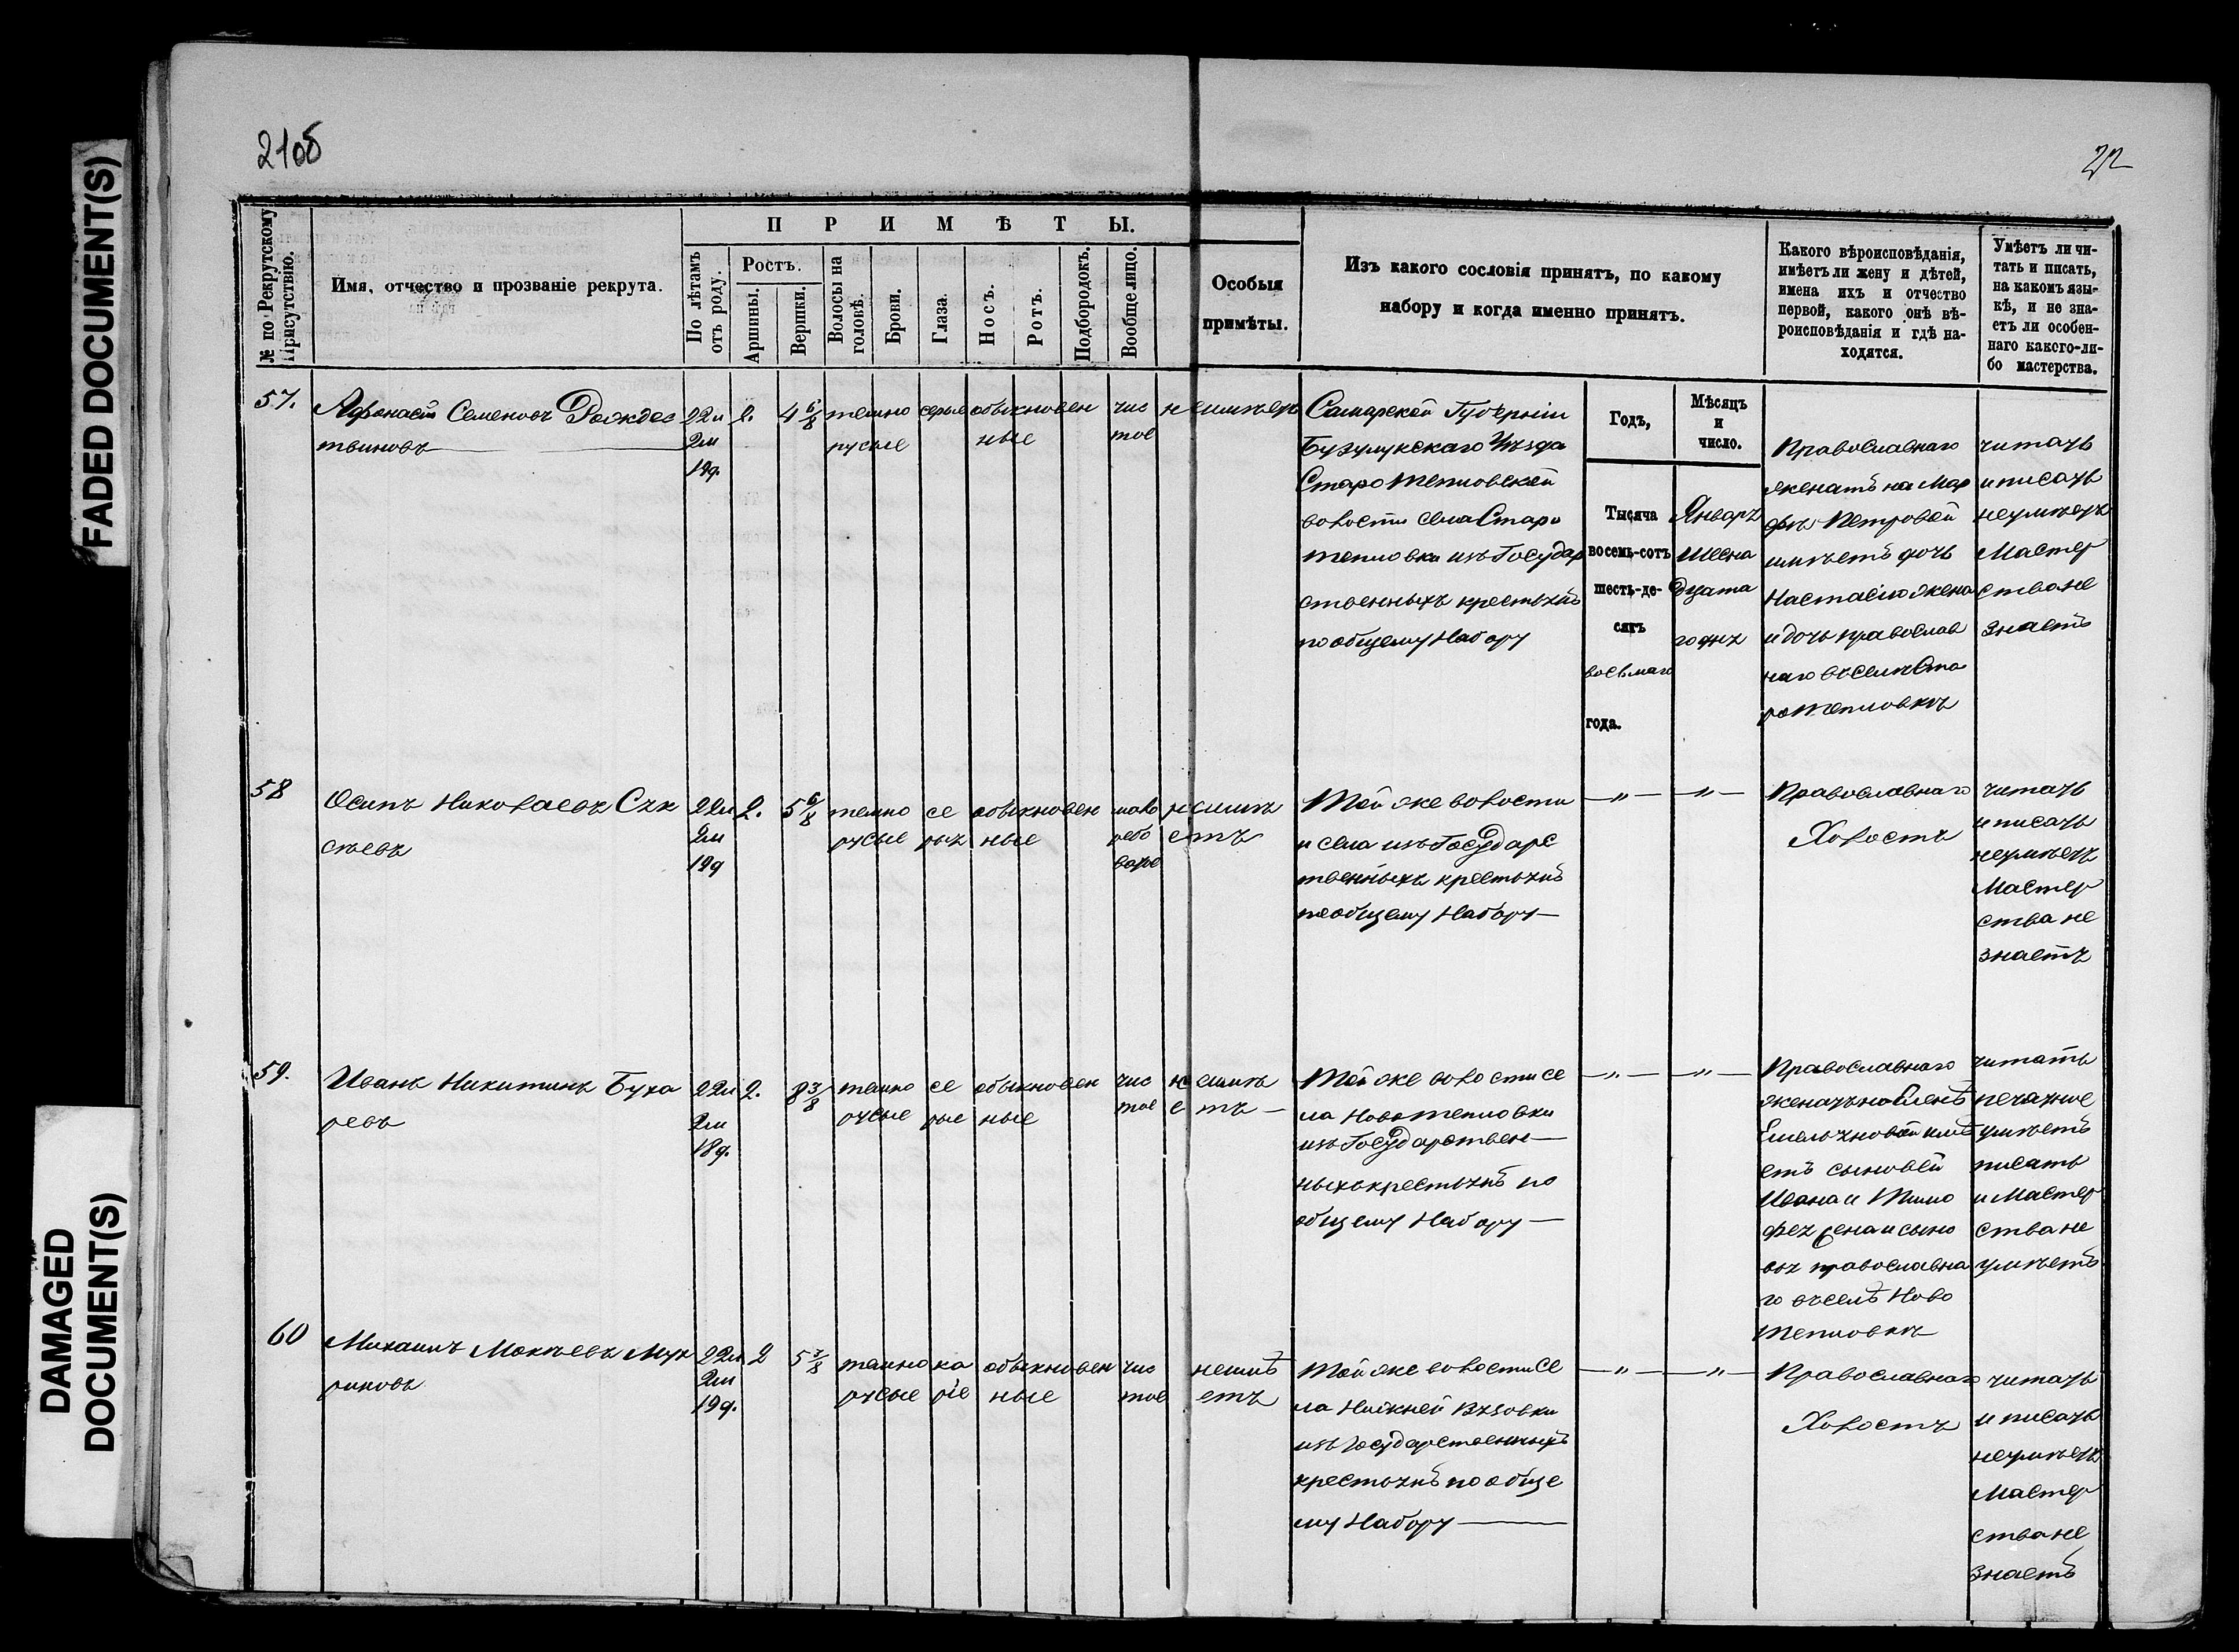 FADED DOCUMENT(S)
DAMAGED
DOCUMENT(S)
21об
22
№ по Рекрутскому
Присутствію.
Имя, отчество и прозваніе рекрута.
ПРИМѢТЫ.
По лѣтамъ
отъ роду.
Ростъ.
Аршины.
Вершки.
Волосы на
головѣ.
Брови.
Глаза.
Носъ.
Ротъ.
Подбородокъ.
Вообще лицо.
Особыя
примѣты.
Изъ какого сословія принятъ, по какому
набору и когда именно принятъ.
Какого вѣроисповѣданія,
имѣетъ ли жену и дѣтей,
имена ихъ и отчество
первой, какого онѣ вѣ-
роисповѣданія и гдѣ на-
ходятся.
Умѣетъ ли чи-
тать и писать,
на какомъ язы-
кѣ, и не зна-
етъ ли особен-
наго какого-ли-
бо мастерства.
57.
Афонасій Семеновъ Рождес
твиновъ
22л
2м
19д.
2.
4 6/8
темно
русые
серые
обыкновен
ные
чис
тое
неимѣетъ
Самарской Губерніи
Бузулукскаго Уѣзда
Старо Тепловской
волости села Старо
тепловки изъ Государ
ственныхъ крестьянъ
по общему Набору
Годъ,
Мѣсяцъ
и
число.
Тысяча
восемь-сотъ
шесть-де-
сятъ
восьмаго
года.
Январь
Шесна
дцата
го дня
Православнаго
женатъ на Мар
фѣ Петровой
имѣетъ дочь
Настасію жена
и дочь православ
наго въ селѣ Ста
ро Тепловкѣ
читать
и писать
неумѣетъ
Мастер
ства не
знаетъ
58
Осипъ Николаевъ Сѣк
сѣевъ
22л
2м
19д
2.
5 6/8
темно
русые
се
рыя
обыкновен
ные
мало
рябо
ватое
неимѣ
етъ
Той же волости
и села изъ Государс
твенныхъ крестьянъ
по общему Набору —
— " —
— " —
Православнаго
Холостъ
читать
и писать
неумѣетъ
Мастер
ства не
знаетъ
59.
Иванъ Никитинъ Буха
ревъ
22л
2м
18д.
2.
8 3/8
темно
русые
се
рые
обыкновен
ные
чис
тое
неимѣ
етъ —
Той же волости се
ла Новотепловки
изъ Государствен—
ныхъ крестьянъ по
общему Набору —
— " —
— " —
Православнаго
женатъ на Еленѣ
Емельяновой имѣ
етъ сыновей
Ивана и Тимо
фея жена и сыно
вья православна
го въ селѣ Ново
Тепловкѣ
читать
печатное
умѣетъ
писать
и Мастер
ства не
умѣетъ
60
Михаилъ Мокѣевъ Мук
риновъ
22л
2м
19д.
2
5 7/8
темно
русые
ка
ріе
обыкновен
ные
чис
тое
неимѣ
етъ
Той же волости Се
ла Нижней Вязовки
изъ государственныхъ
крестьянъ по обще
му Набору —
— " —
— " —
Православнаго
Холостъ
читать
и писать
неумѣетъ
Мастер
ства не
знаетъ